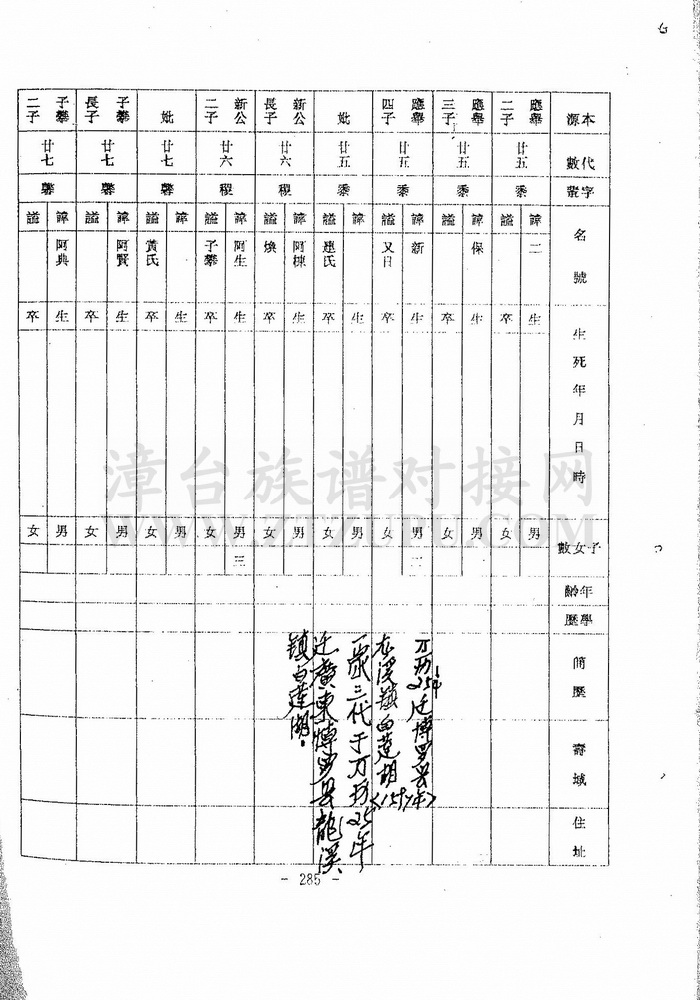 本源
代數
字輩
名號
生死年月日時
子女數
年齡
學歷
簡歷
壽域
住址
應舉二子
廿五
黍
諱 二
謚
生
卒
男
女
應舉三子
廿五
黍
諱 保
謚
生
卒
男
女
應舉四子
廿五
黍
諱 新
謚 又日
生
卒
男 二
女
妣
廿五
黍
諱
謚 連氏
生
卒
男
女
新公長子
廿六
稷
諱 阿棟
謚 煥
生
卒
男
女
新公二子
廿六
稷
諱 阿生
謚 子攀
生
卒
男 三
女
妣
廿七
馨
諱
謚 黃氏
生
卒
男
女
子攀長子
廿七
馨
諱 阿賢
謚
生
卒
男
女
子攀二子
廿七
馨
諱 阿典
謚
生
卒
男
女
万历25年迁博罗县
龙溪镇白莲湖(1597年)
一家三代于万历25年
迁廣東博罗县龍溪
镇白莲湖.
- 285 -
漳台族谱对接网